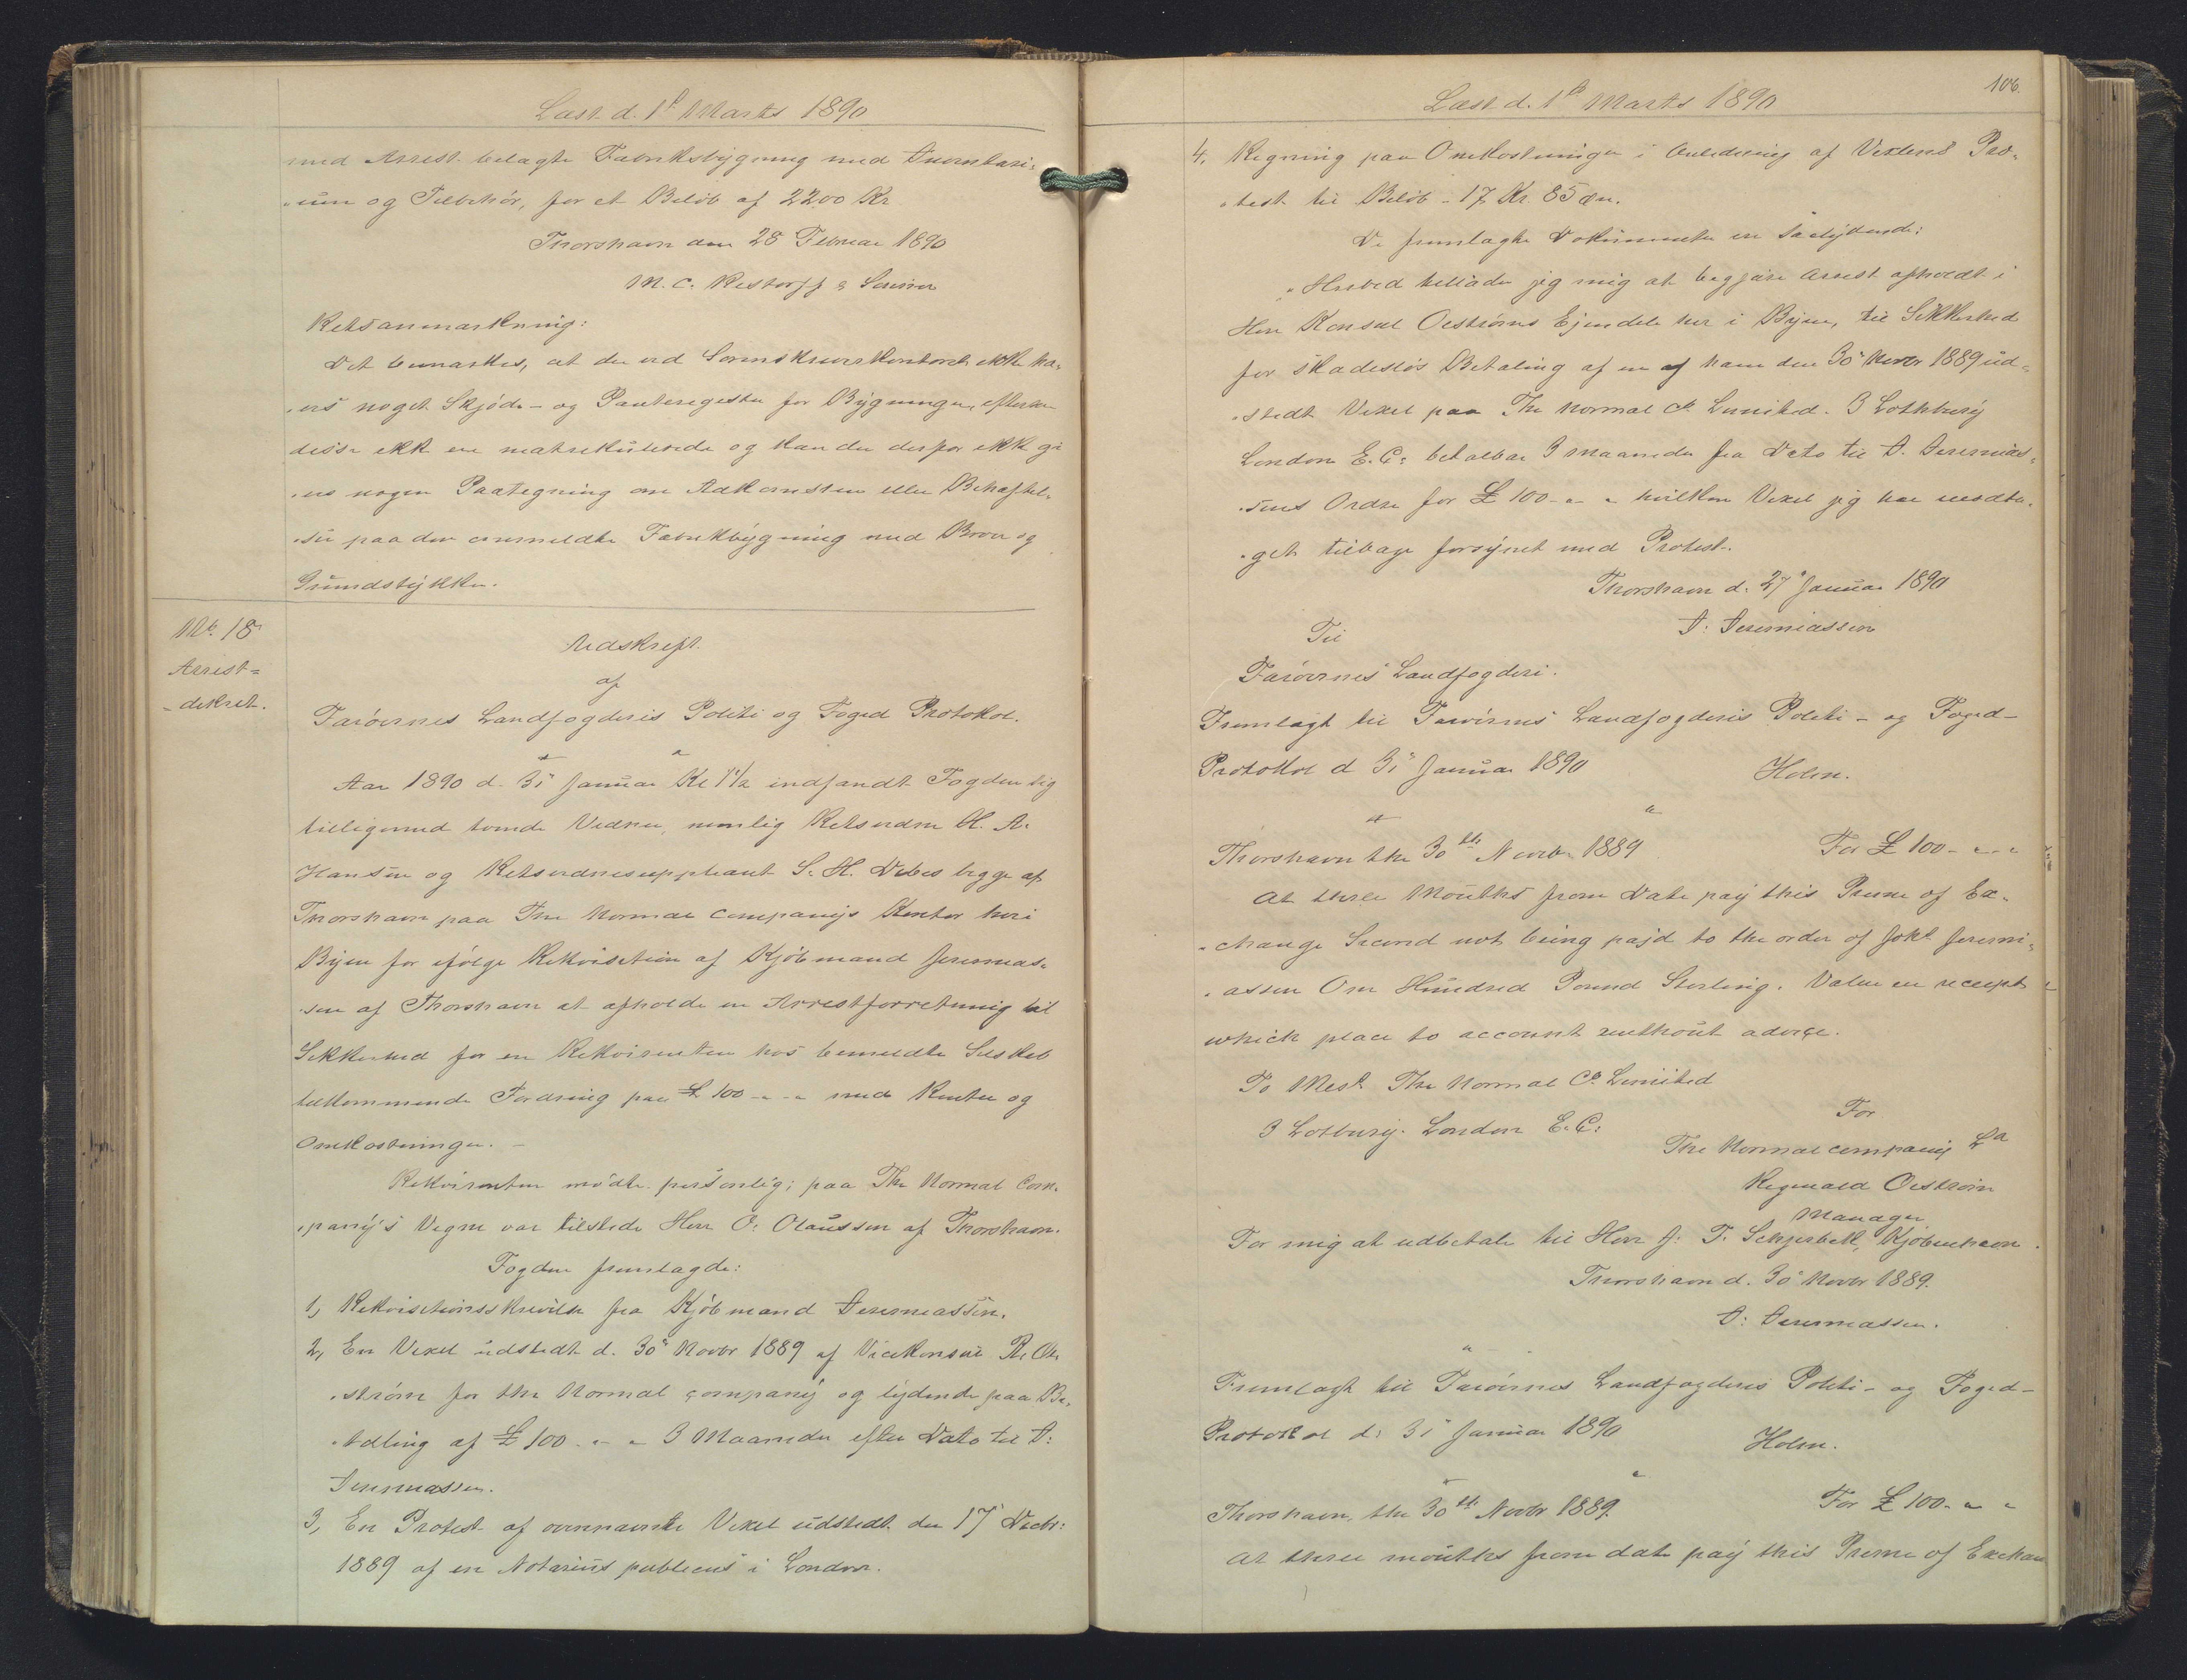 Læst d. 1ᵗ Marts 1890
med Arrest belagte Fabriksbygning med Inventari-
um og Tilbehör, for et Belöb af 2200 Kr
Thorshavn den 28 Februar 1890
M. C. Restorff & Sönner
Retsanmærkning:
Det bemærkes, at der ved Sorenskriverkontoret ikke ha-
ves noget Skjöde- og Panteregister for Bygninger, efterso
disse ikke ere matrikulerede og kan der derfor ikke gi
ves nogen Paategning om Adkomsten eller Behæftel-
ser paa den anmeldte Fabrikbygning med Broer og
Grundstykker.
Nº 18
Arrest-
dekret.
Udskrift
af
Færöernes Landfogderis Politi og Foged Protokol.
Aar 1890 d. 31 Januar Kl 1 1/2 indfandt Fogden sig
tilligemed tvende Vidner, nemlig Retsvidne H. A.
Hansen og Retsvidnesuppleant S. H. Debes begge af
Thorshavn paa The Normal Companys Kontor heri
Byen for ifölge Rekvisition af Kjöbmand Jeremias-
sen af Thorshavn at afholde en Arrestforretning til
Sikkerhed for en Rekvirenten hos bemeldte Selskab
tilkommende Fordring paa £ 100 - " - " med Renter og
Omkostninger. -
Rekvirenten mödte personlig; paa The Normal Com-
pany's Vegne var tilstede Herr O. Olaussen af Thorshavn.
Fogden fremlagde:
1, Rekvisitionsskrivelse fra Kjöbmand Jeremiassen.
2, En Vexel udstedt d. 30 Novbr 1889 af Vicekonsul R. Oe-
ström for the Normal company og lydende paa Be-
taling af £ 100 - " - " 3 Maaneder efter Dato til J:
Jeremiassen.
3, En Protest af ovennævnte Vexel udstedt den 17 Decbr:
1889 af en Notarius publicus i London.
106.
Læst d. 1ᵗ Marts 1890
4, Regning paa Omkostninger i Anledning af Vexlens Pro-
test til Belöb - 17 Kr. 85 Øre.
De fremlagte Dokumenter ere saalydende:
"Herved tillader jeg mig at begjære Arrest afholdt i
Herr Konsul Oeströms Ejendele her i Byen, til Sikkerhed
for skadeslös Betaling af en af ham den 30 Novbr 1889 ud-
stedt Vexel paa The Normal Cº Limited. 3 Lothbury
London E. C: betalbar 3 Maaneder fra Dato til J. Jeremias-
sens Ordre for £ 100 - " - " hvilken Vexel jeg har modta-
get tilbage forsynet med Protest.
Thorshavn d. 27 Januar 1890
J: Jeremiassen
Til
Færöernes Landfogderi.
Fremlagt til Færöernes Landfogderis Politi- og Foged-
Protokol d 31 Januar 1890
Holm.
Thorshavn the 30th Novbr 1889
For £ 100 - " - "
At three Months from Date pay this Prime of Ex-
change Second not being pajd to the order of Jokl Jeremi-
assen One Hundred Pound Sterling. Value en recept
which place to account without advice.
To Mesrs The Normal Cº Limited
3 Lotbury. London E. C:
For
The Normal company Ld
Reginald Oeström
Manager
For mig at udbetale til Herr J: T. Schjerbek, Kjöbenhavn.
Thorshavn d. 30 Novbr 1889.
J: Jeremiassen.
Fremlagt til Færöernes Landfogderis Politi- og Foged-
Protokol d: 31 Januar 1890
Holm.
Thorshavn, the 30th Novbr 1889.
For £ 100 - " "
At three mouths from date pay this Prime of Exchan